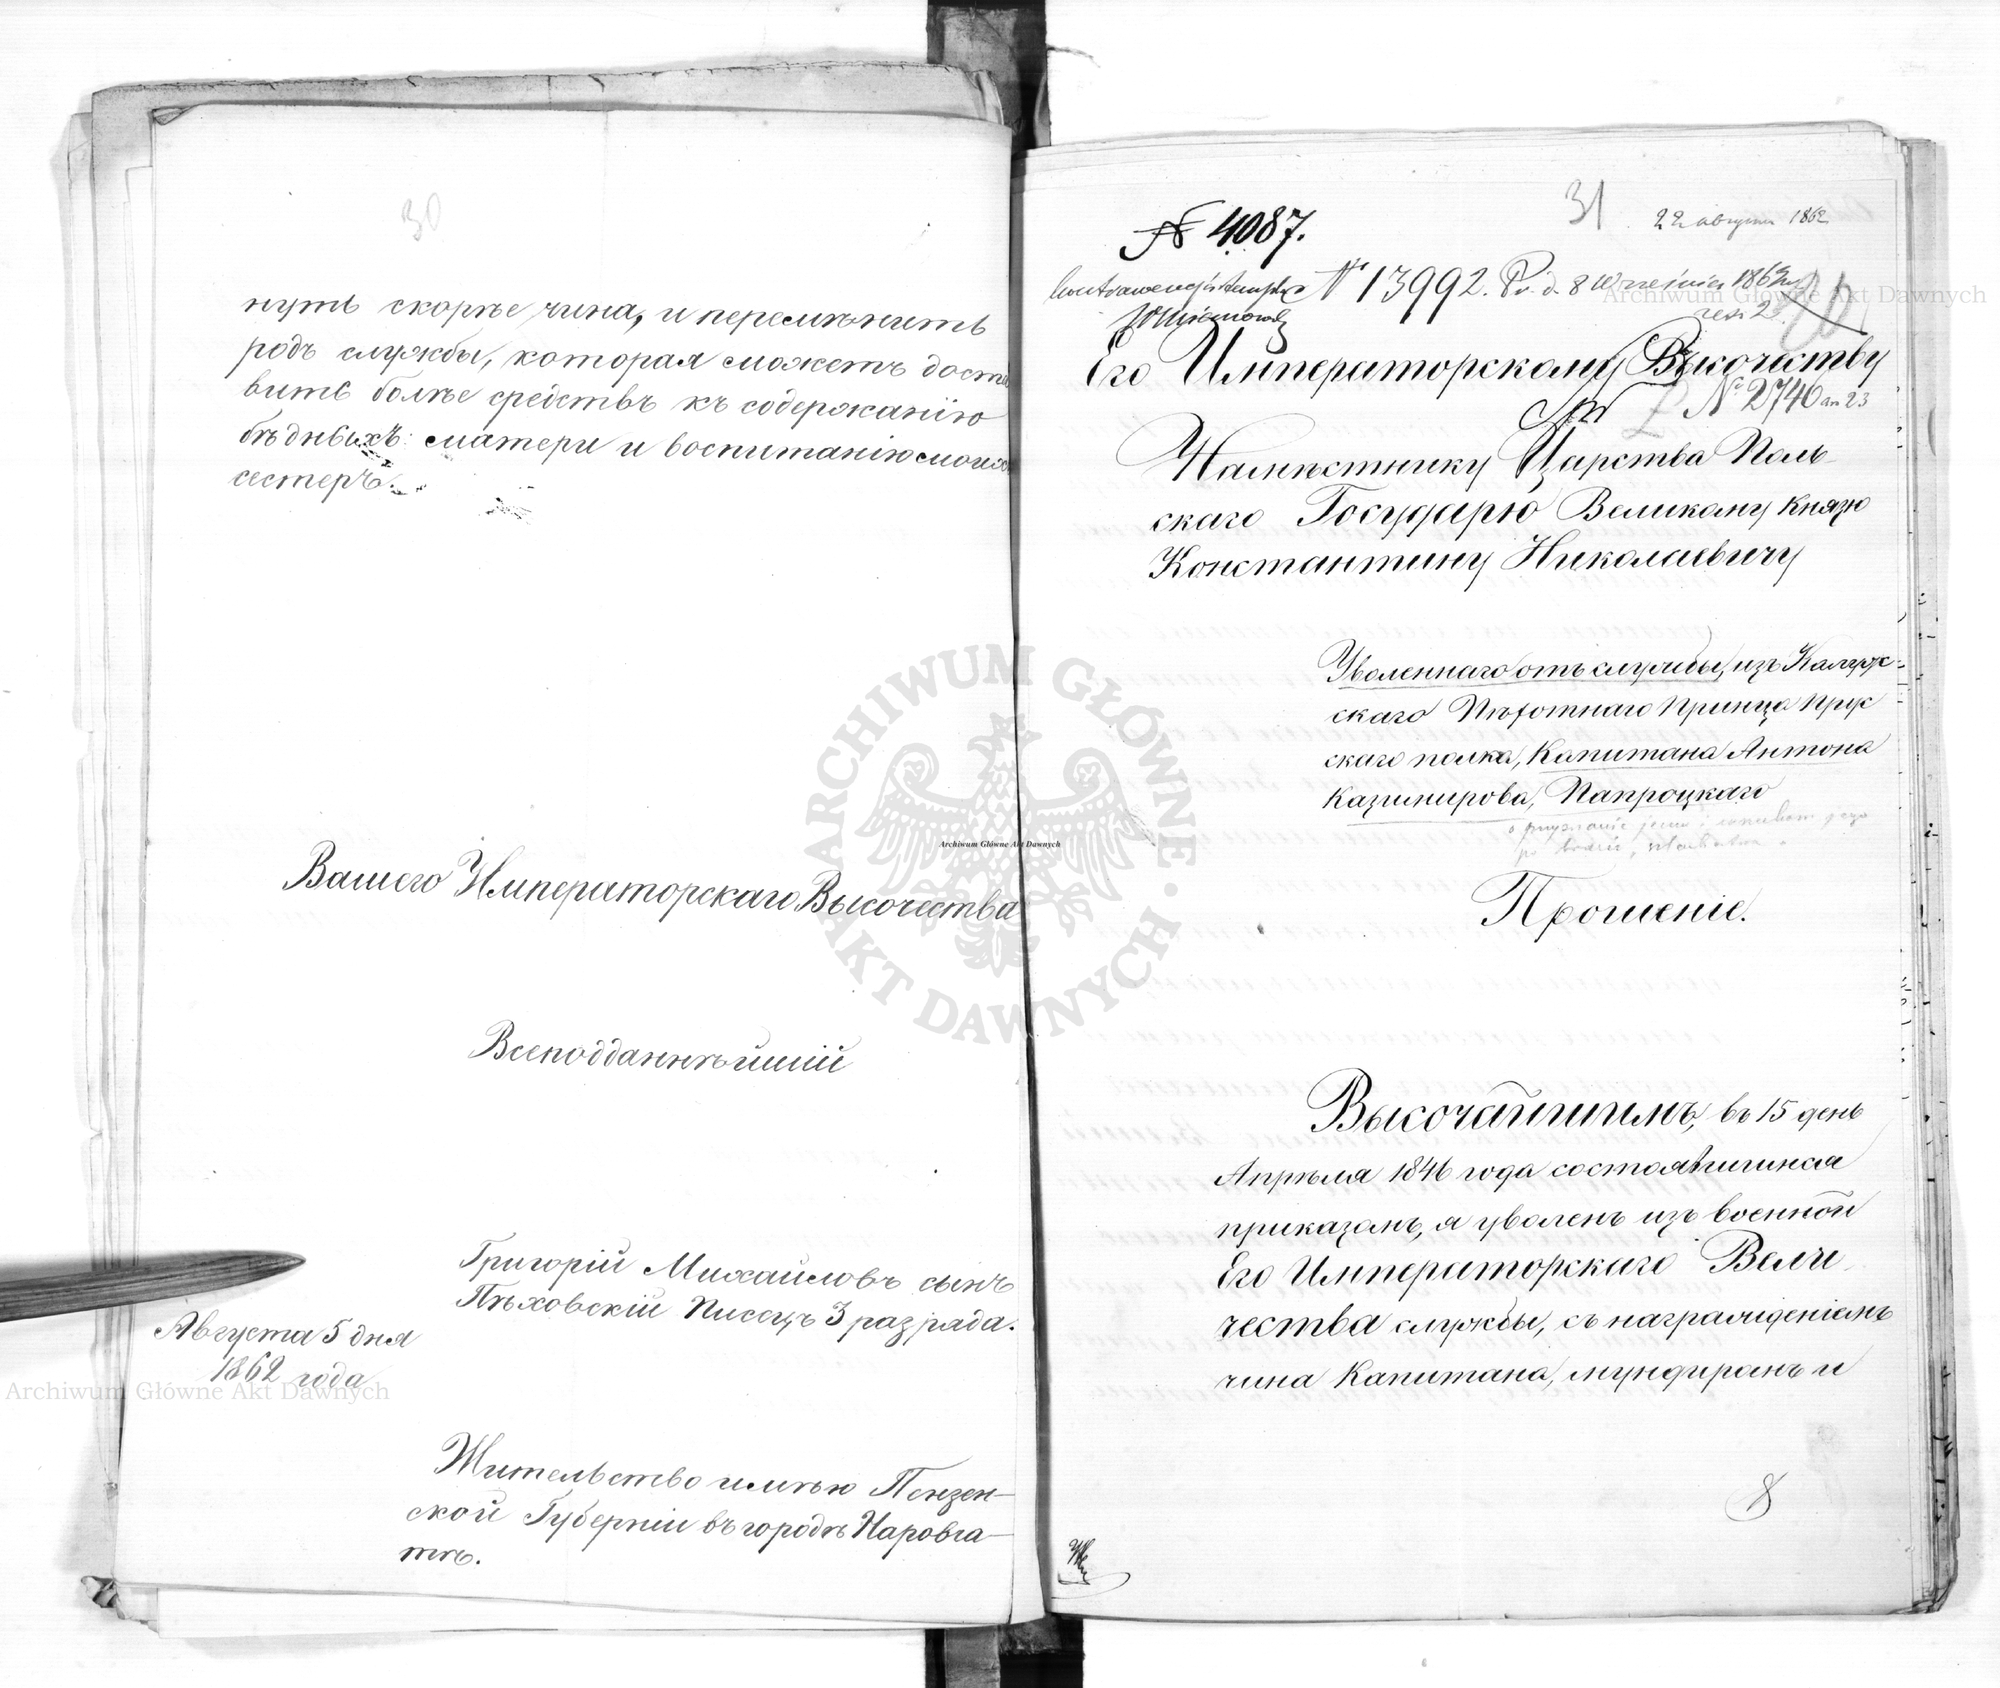 30
нуть скорѣе чина, и перемѣнить
родъ службы, которая можетъ доста
вить болѣе средствъ къ содержанію
бѣдныхъ: матери и воспитанію моихъ
сестеръ.
Вашего Императорскаго Высочества
Всеподданнѣйшій
Григорій Михайловъ сынъ
Пѣховскій Писецъ 3 разряда.
Августа 5 дня
1862 года
Жительство имѣю Пензен-
ской Губерніи въ городѣ Наровча-
тѣ.
31
22 августа 1862
№ 4087.
№ 13992. Pr. d. 8 Września 1862
Его Императорскому Высочеству
№ 2746
Намѣстнику Царства Поль-
скаго Государю Великому Князю
Константину Николаевичу
Уволеннаго отъ службы, изъ Калуж-
скаго Пѣхотнаго Принца Прус
скаго полка, Капитана Антона
Казимирова, Папроцкаго
Прошеніе.
Высочайшимъ, въ 15 день
Апрѣля 1846 года состоявшимся
приказомъ, я уволенъ изъ военной
Его Императорскаго Вели
чества службы, съ награжденіемъ
чина Капитана, мундиромъ и
8
ARCHIWUM GŁÓWNE AKT DAWNYCH
Archiwum Główne Akt Dawnych
Archiwum Główne Akt Dawnych
Archiwum Główne Akt Dawnych